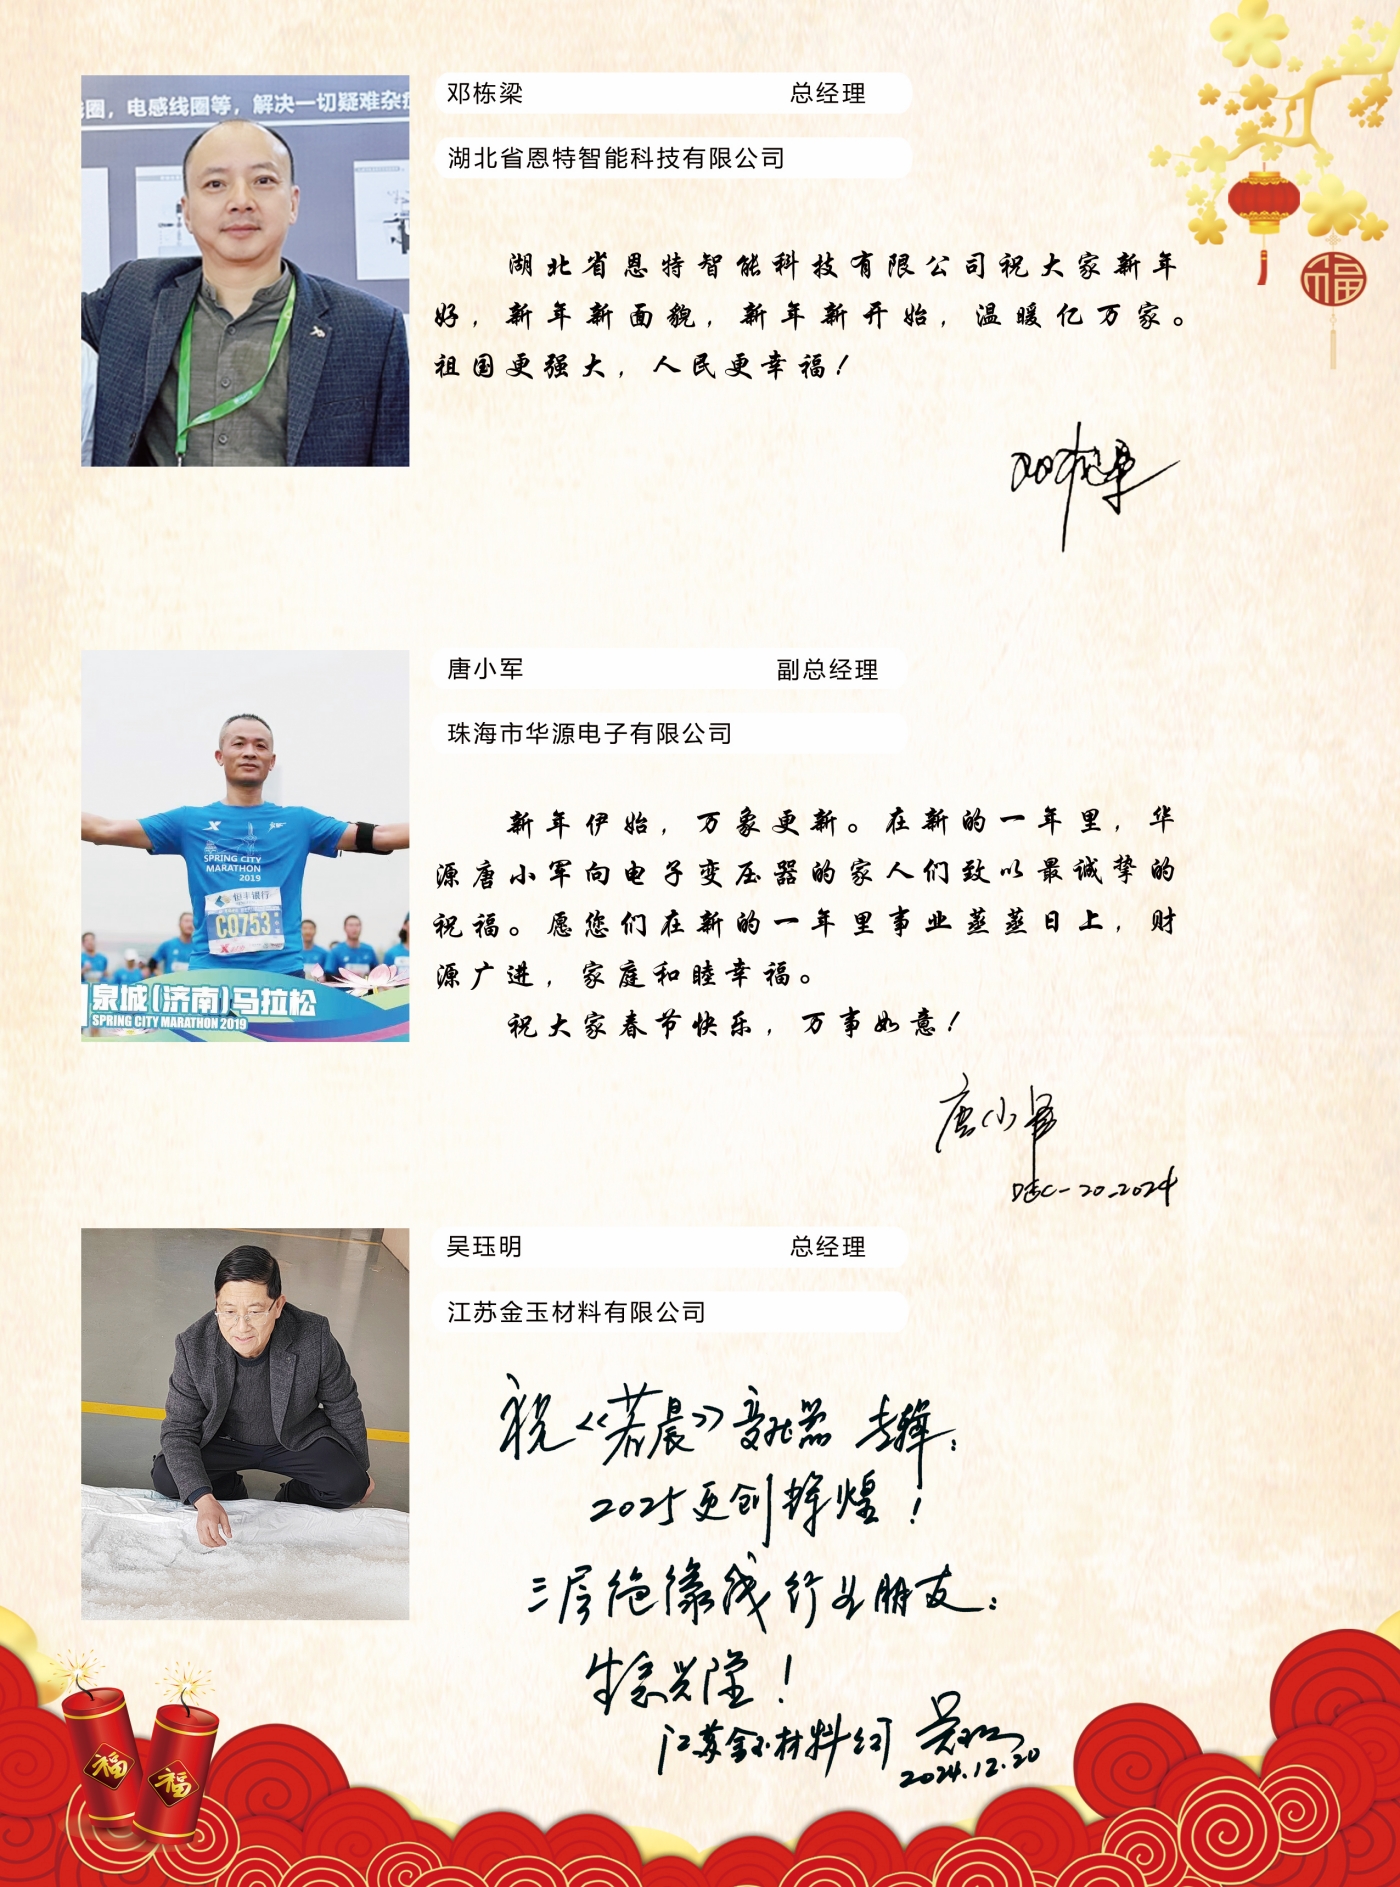 线圈，电感线圈等，解决一切疑难杂
邓栋梁 总经理
湖北省恩特智能科技有限公司
湖北省恩特智能科技有限公司祝大家新年
好，新年新面貌，新年新开始，温暖亿万家。
祖国更强大，人民更幸福！
邓栋梁
福
唐小军 副总经理
珠海市华源电子有限公司
SPRING CITY
MARATHON
2019
恒丰银行
C0753
泉城(济南)马拉松
SPRING CITY MARATHON 2019
新年伊始，万象更新。在新的一年里，华
源唐小军向电子变压器的家人们致以最诚挚的
祝福。愿您们在新的一年里事业蒸蒸日上，财
源广进，家庭和睦幸福。
祝大家春节快乐，万事如意！
唐小军
DEC-20-2024
吴珏明 总经理
江苏金玉材料有限公司
祝《若晨》变压器专辑：
2025更创辉煌！
三层绝缘线行业朋友：
生意兴隆！
江苏金玉材料公司
2024.12.20
福
福